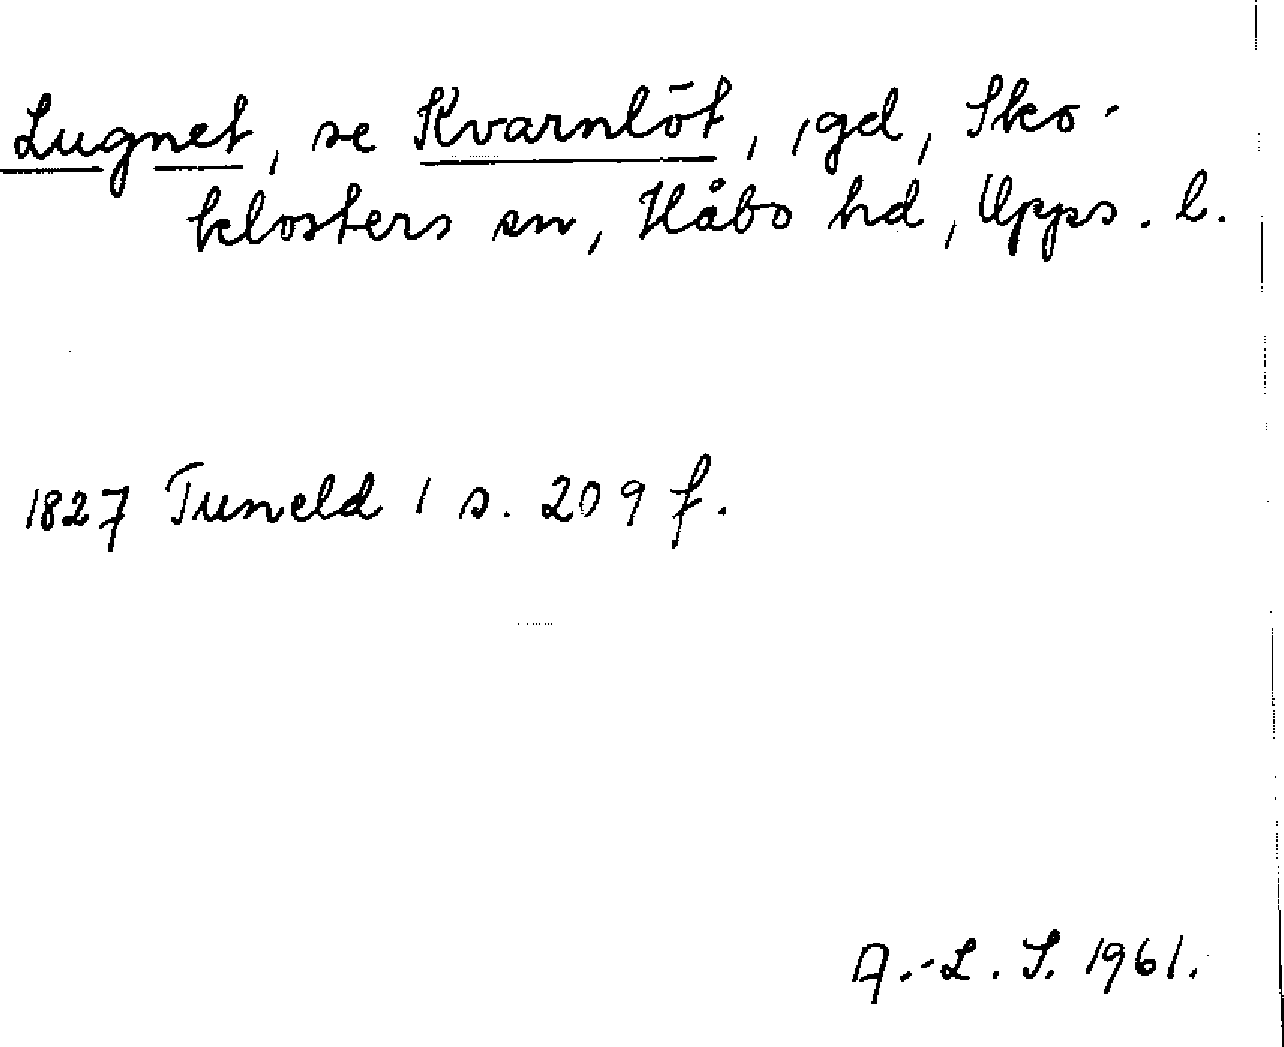 Lugnet, se Kvarnlöt, gd, Sko-
klosters sn, Håbo hd, Upps. l.
1827 Tuneld 1 s. 209 f.
A.-L. S. 1961.